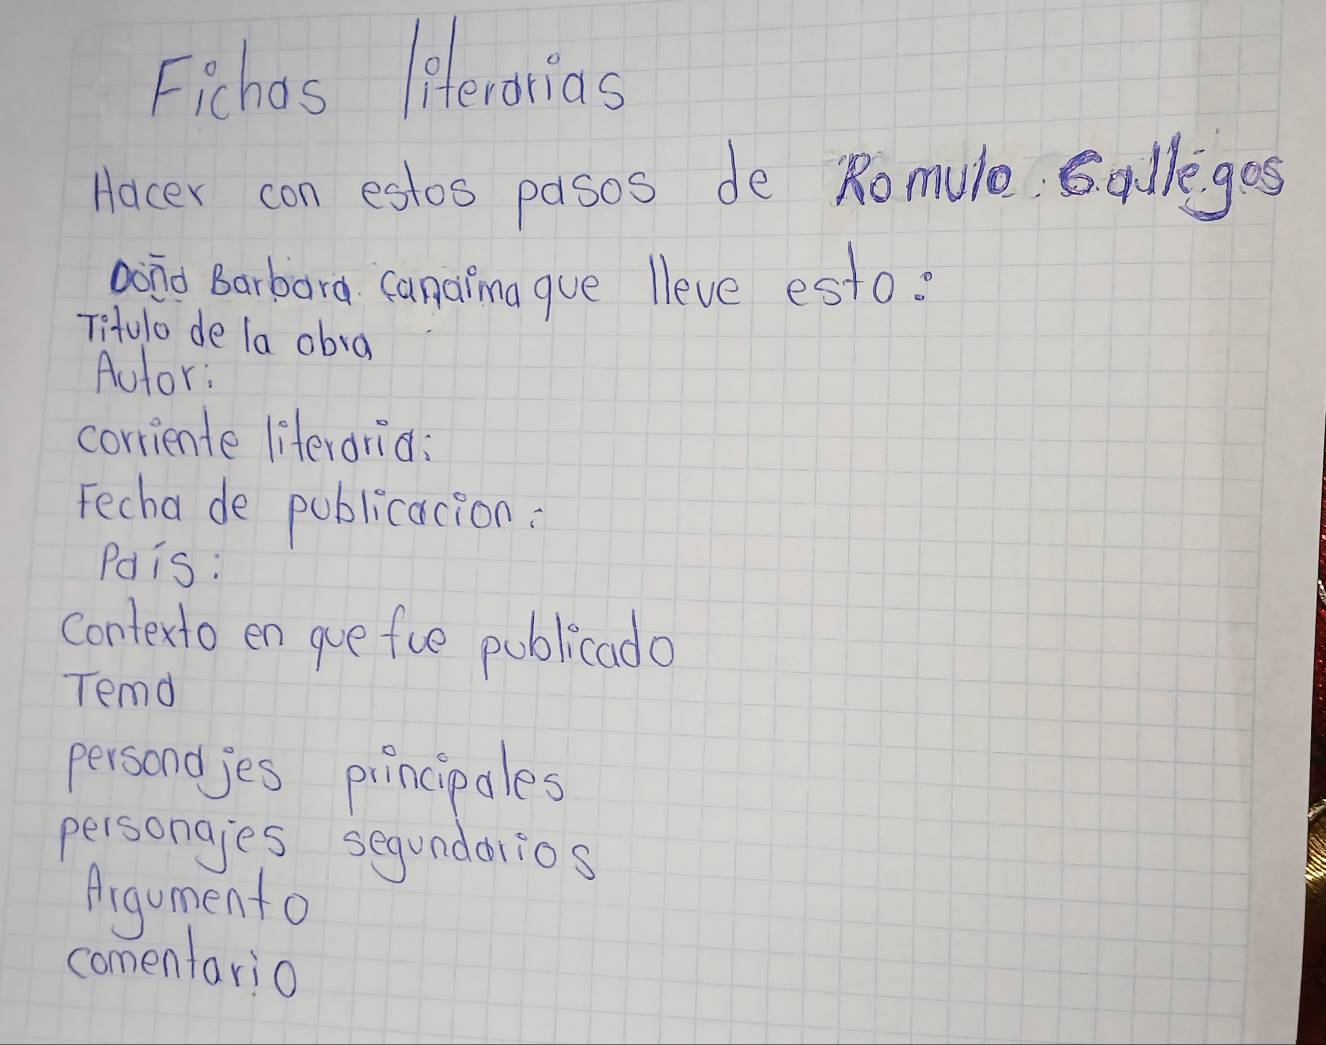 Fichas literarias
Hacer con estos pasos de Romulo Gallegos
Doña Barbara. Canaima que lleve esto:
Titulo de la obra
Autor:
corriente literaria:
Fecha de publicacion:
País:
contexto en que fue publicado
Tema
personajes principales
personajes segundarios
Argumento
comentario